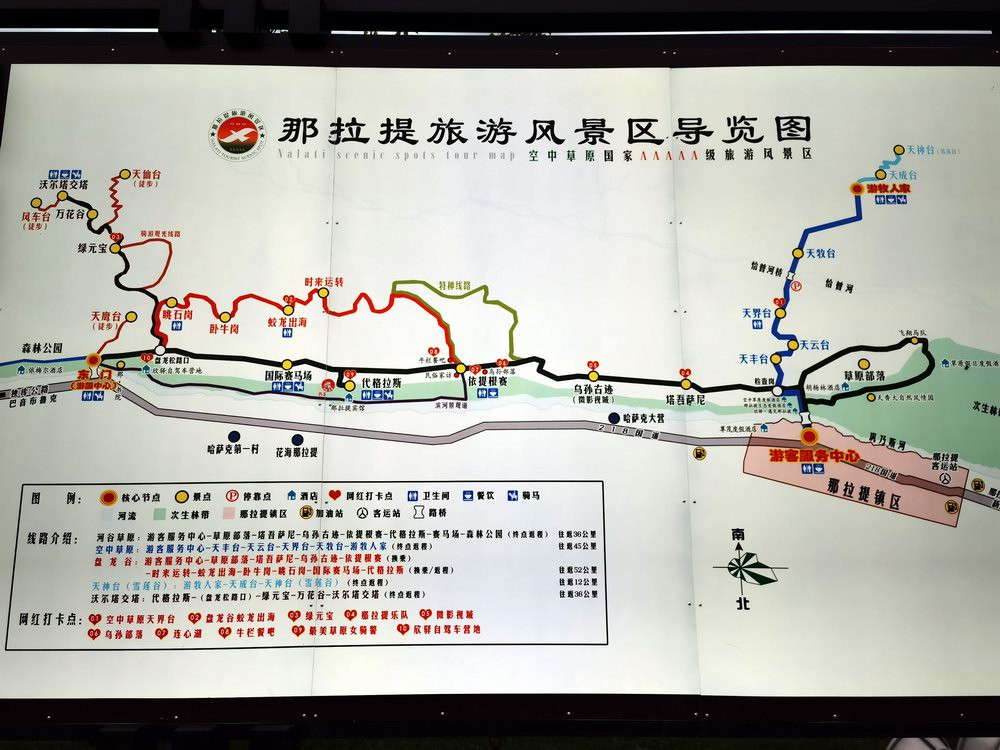 那拉提旅游风景区导览图
Nalati scenic spots tour map 空中草原国家AAAAA级旅游风景区
天神台
天成台
游牧人家
天仙台
(徒步)
沃尔塔交塔
风车台
(徒步)
万花谷
绿元宝
骑游观光线路
天牧台
恰普河桥
恰普河
时来运转
特种线路
眺石岗
卧牛岗
蛟龙出海
天磨台
(徒步)
天界台
天云台
天丰台
飞翔马队
森林公园
盘龙松路口
东门
(游客中心)
欣驿自驾车营地
国际赛马场
代格拉斯
牛栏餐吧
民俗家访
乌孙部落
依提根赛
乌孙古迹
(微影视城)
塔吾萨尼
检查岗
草原部落
胡杨林酒店
天香大自然风情园
那拉提宾馆
滨河景观道
巴音布鲁克
哈萨克第一村
花海那拉提
哈萨克大营
218国道
游客服务中心
218国道
那拉提镇区
那拉提
客运站
次生林
南
北
图 例: 核心节点 景点 停靠点 酒店 网红打卡点 卫生间 餐饮 骑马
河流 次生林带 那拉提镇区 加油站 客运站 路桥
线路介绍: 河谷草原:游客服务中心-草原部落-塔吾萨尼-乌孙古迹-依提根赛-代格拉斯-赛马场-森林公园(终点返程) 往返36公里
空中草原:游客服务中心-天丰台-天云台-天界台-天牧台-游牧人家(终点返程) 往返45公里
盘龙谷:游客服务中心-草原部落-塔吾萨尼-乌孙古迹-依提根赛(换乘)
-时来运转-蛟龙出海-卧牛岗-眺石岗-国际赛马场-代格拉斯(换乘/返程) 往返52公里
天神台(雪莲谷):游牧人家-天成台-天神台(雪莲谷)(终点返程) 往返12公里
沃尔塔交塔:代格拉斯-(盘龙松路口)-绿元宝-万花谷-沃尔塔交塔(终点返程) 往返36公里
网红打卡点: 01 空中草原天界台 02 盘龙谷蛟龙出海 03 绿元宝 04 那拉提乐队 05 微影视城
06 乌孙部落 07 连心湖 08 牛栏餐吧 09 最美草原女骑警 10 欣驿自驾车营地